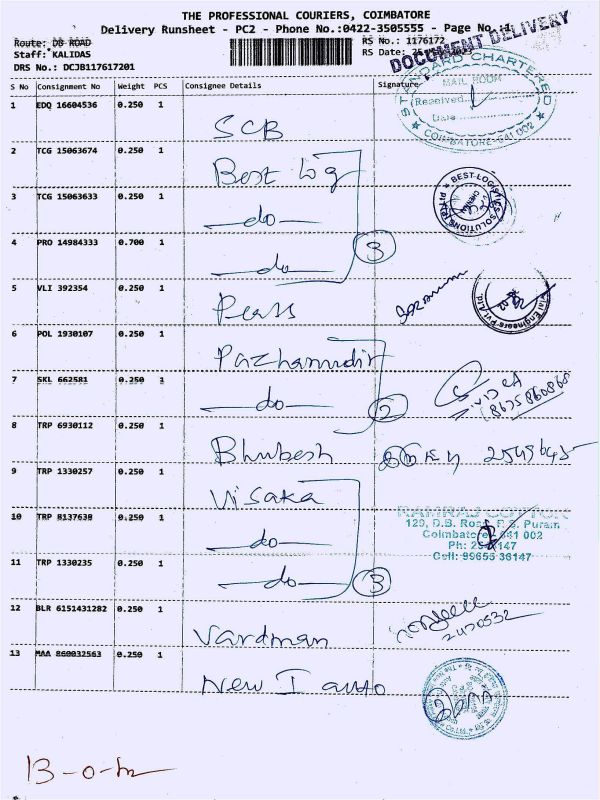 THE PROFESSIONAL COURIERS, COIMBATORE
Delivery Runsheet - PC2 - Phone No.:0422-3505555 - Page No.:1
DOCUMENT DELIVERY
Route: DB ROAD
RS No.: 1176172
Staff: KALIDAS
RS Date:
DRS No.: DCJB117617201
S No Consignment No Weight PCS Consignee Details Signature
STANDARD CHARTERED
MAIL ROOM
Received
Date
COIMBATORE-641 002
1 EDQ 16604536 0.250 1 SCB
2 TCG 15063674 0.250 1 Best Log
3 TCG 15063633 0.250 1 do
BEST LOGISTICS SOLUTIONS
4 PRO 14984333 0.700 1 do
3
5 VLI 392354 0.250 1
Engineers Pvt Ltd
6 POL 1930107 0.250 1 Pazhamudir
7 SKL 662581 0.250 1 do
2
8 TRP 6930112 0.250 1 Bhubesh
9 TRP 1330257 0.250 1 Visaka
10 TRP 8137638 0.250 1 do
RAMRAJ COTTON
129, D.B. Road, R.S. Puram
Coimbatore 641 002
Cell: 99655 36147
11 TRP 1330235 0.250 1 do
3
12 BLR 6151431282 0.250 1 Vardman
2470532
13 MAA 860032563 0.250 1 New I auto